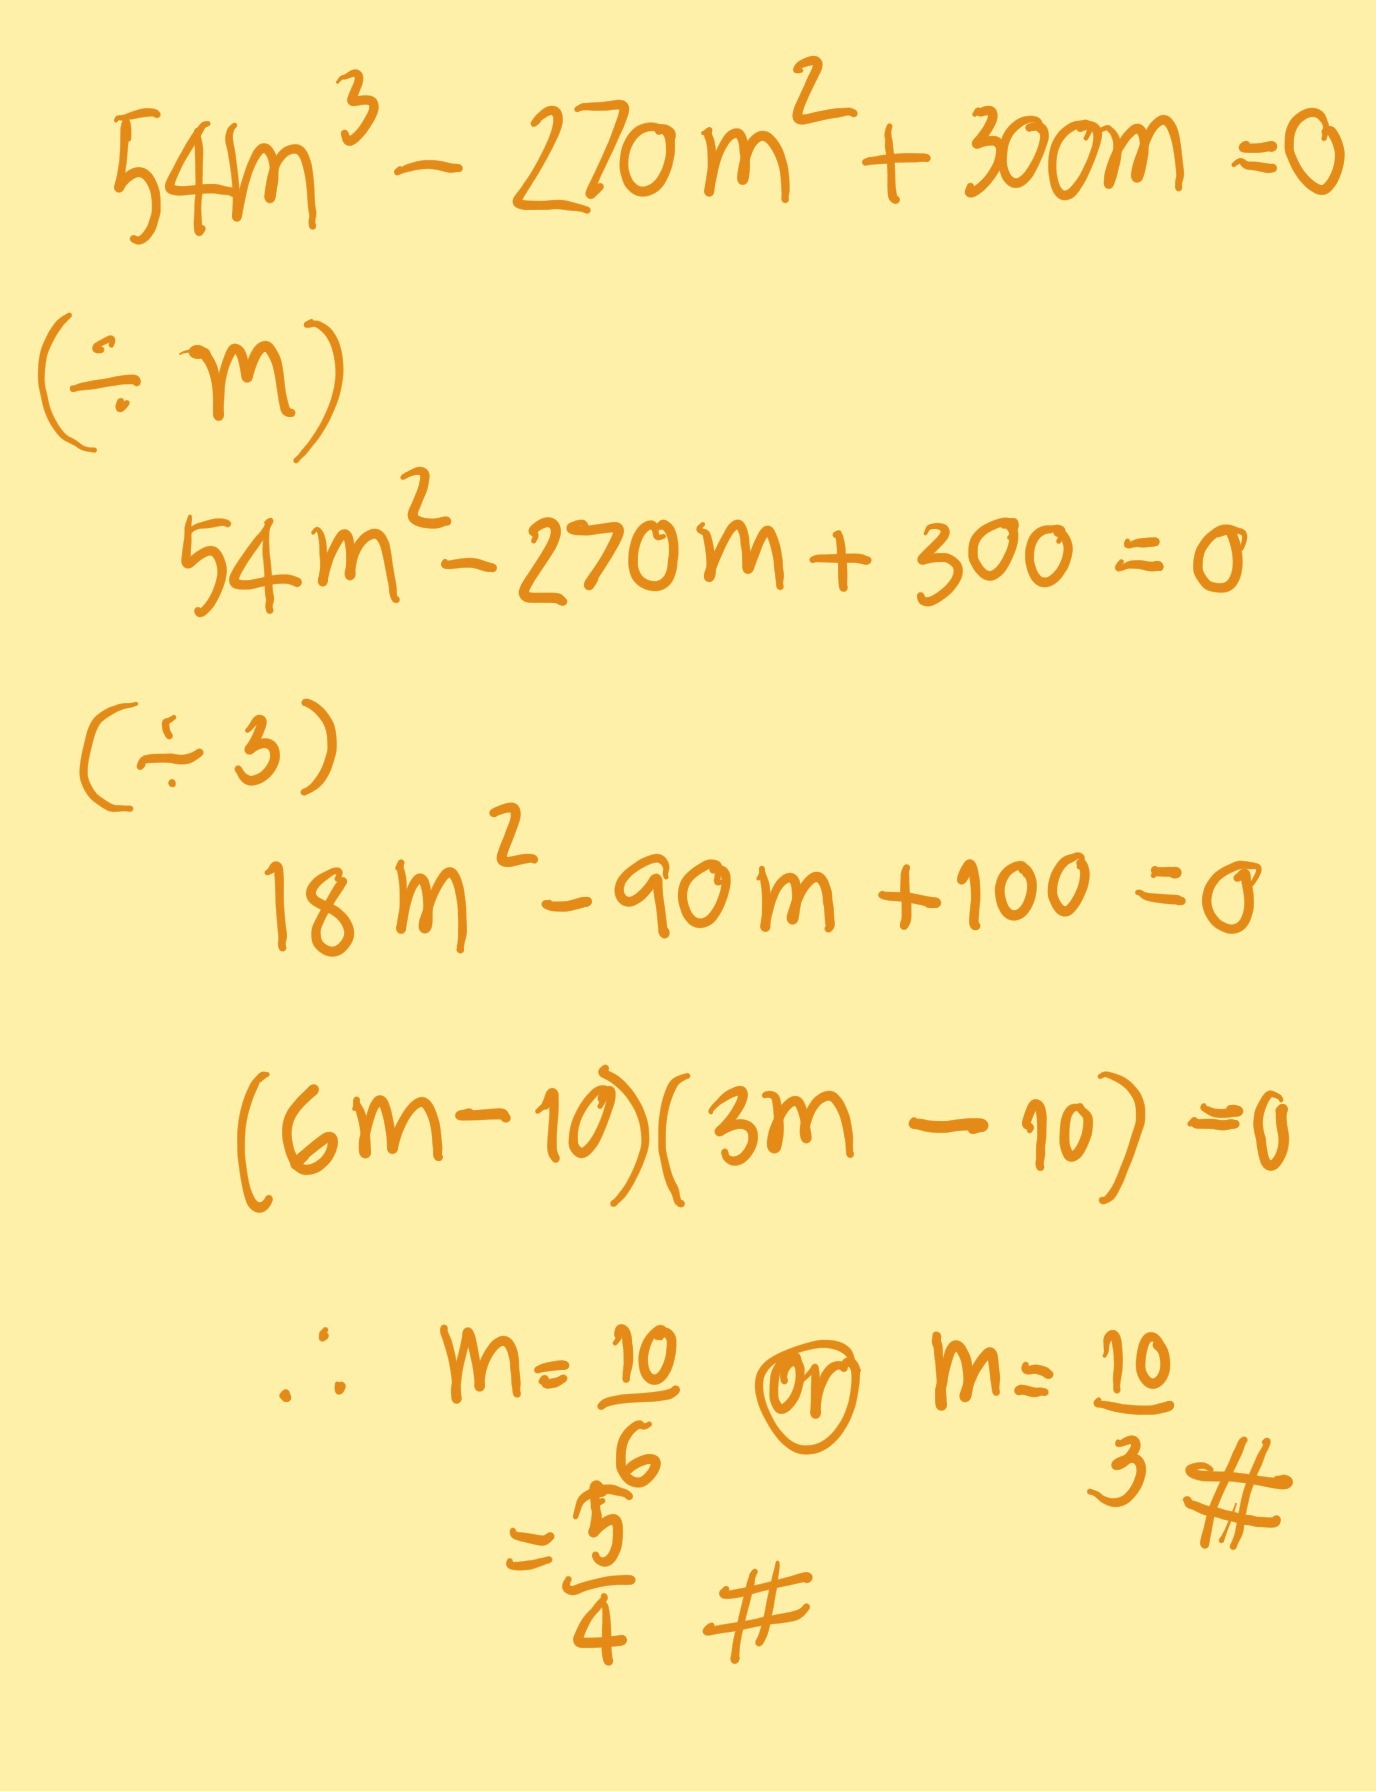 54m³ − 270m² + 300m = 0
(÷ m)
54m² − 270m + 300 = 0
(÷ 3)
18m² − 90m + 100 = 0
(6m − 10)(3m − 10) = 0
∴ m = 10/6 or m = 10/3 #
= 5/4 #